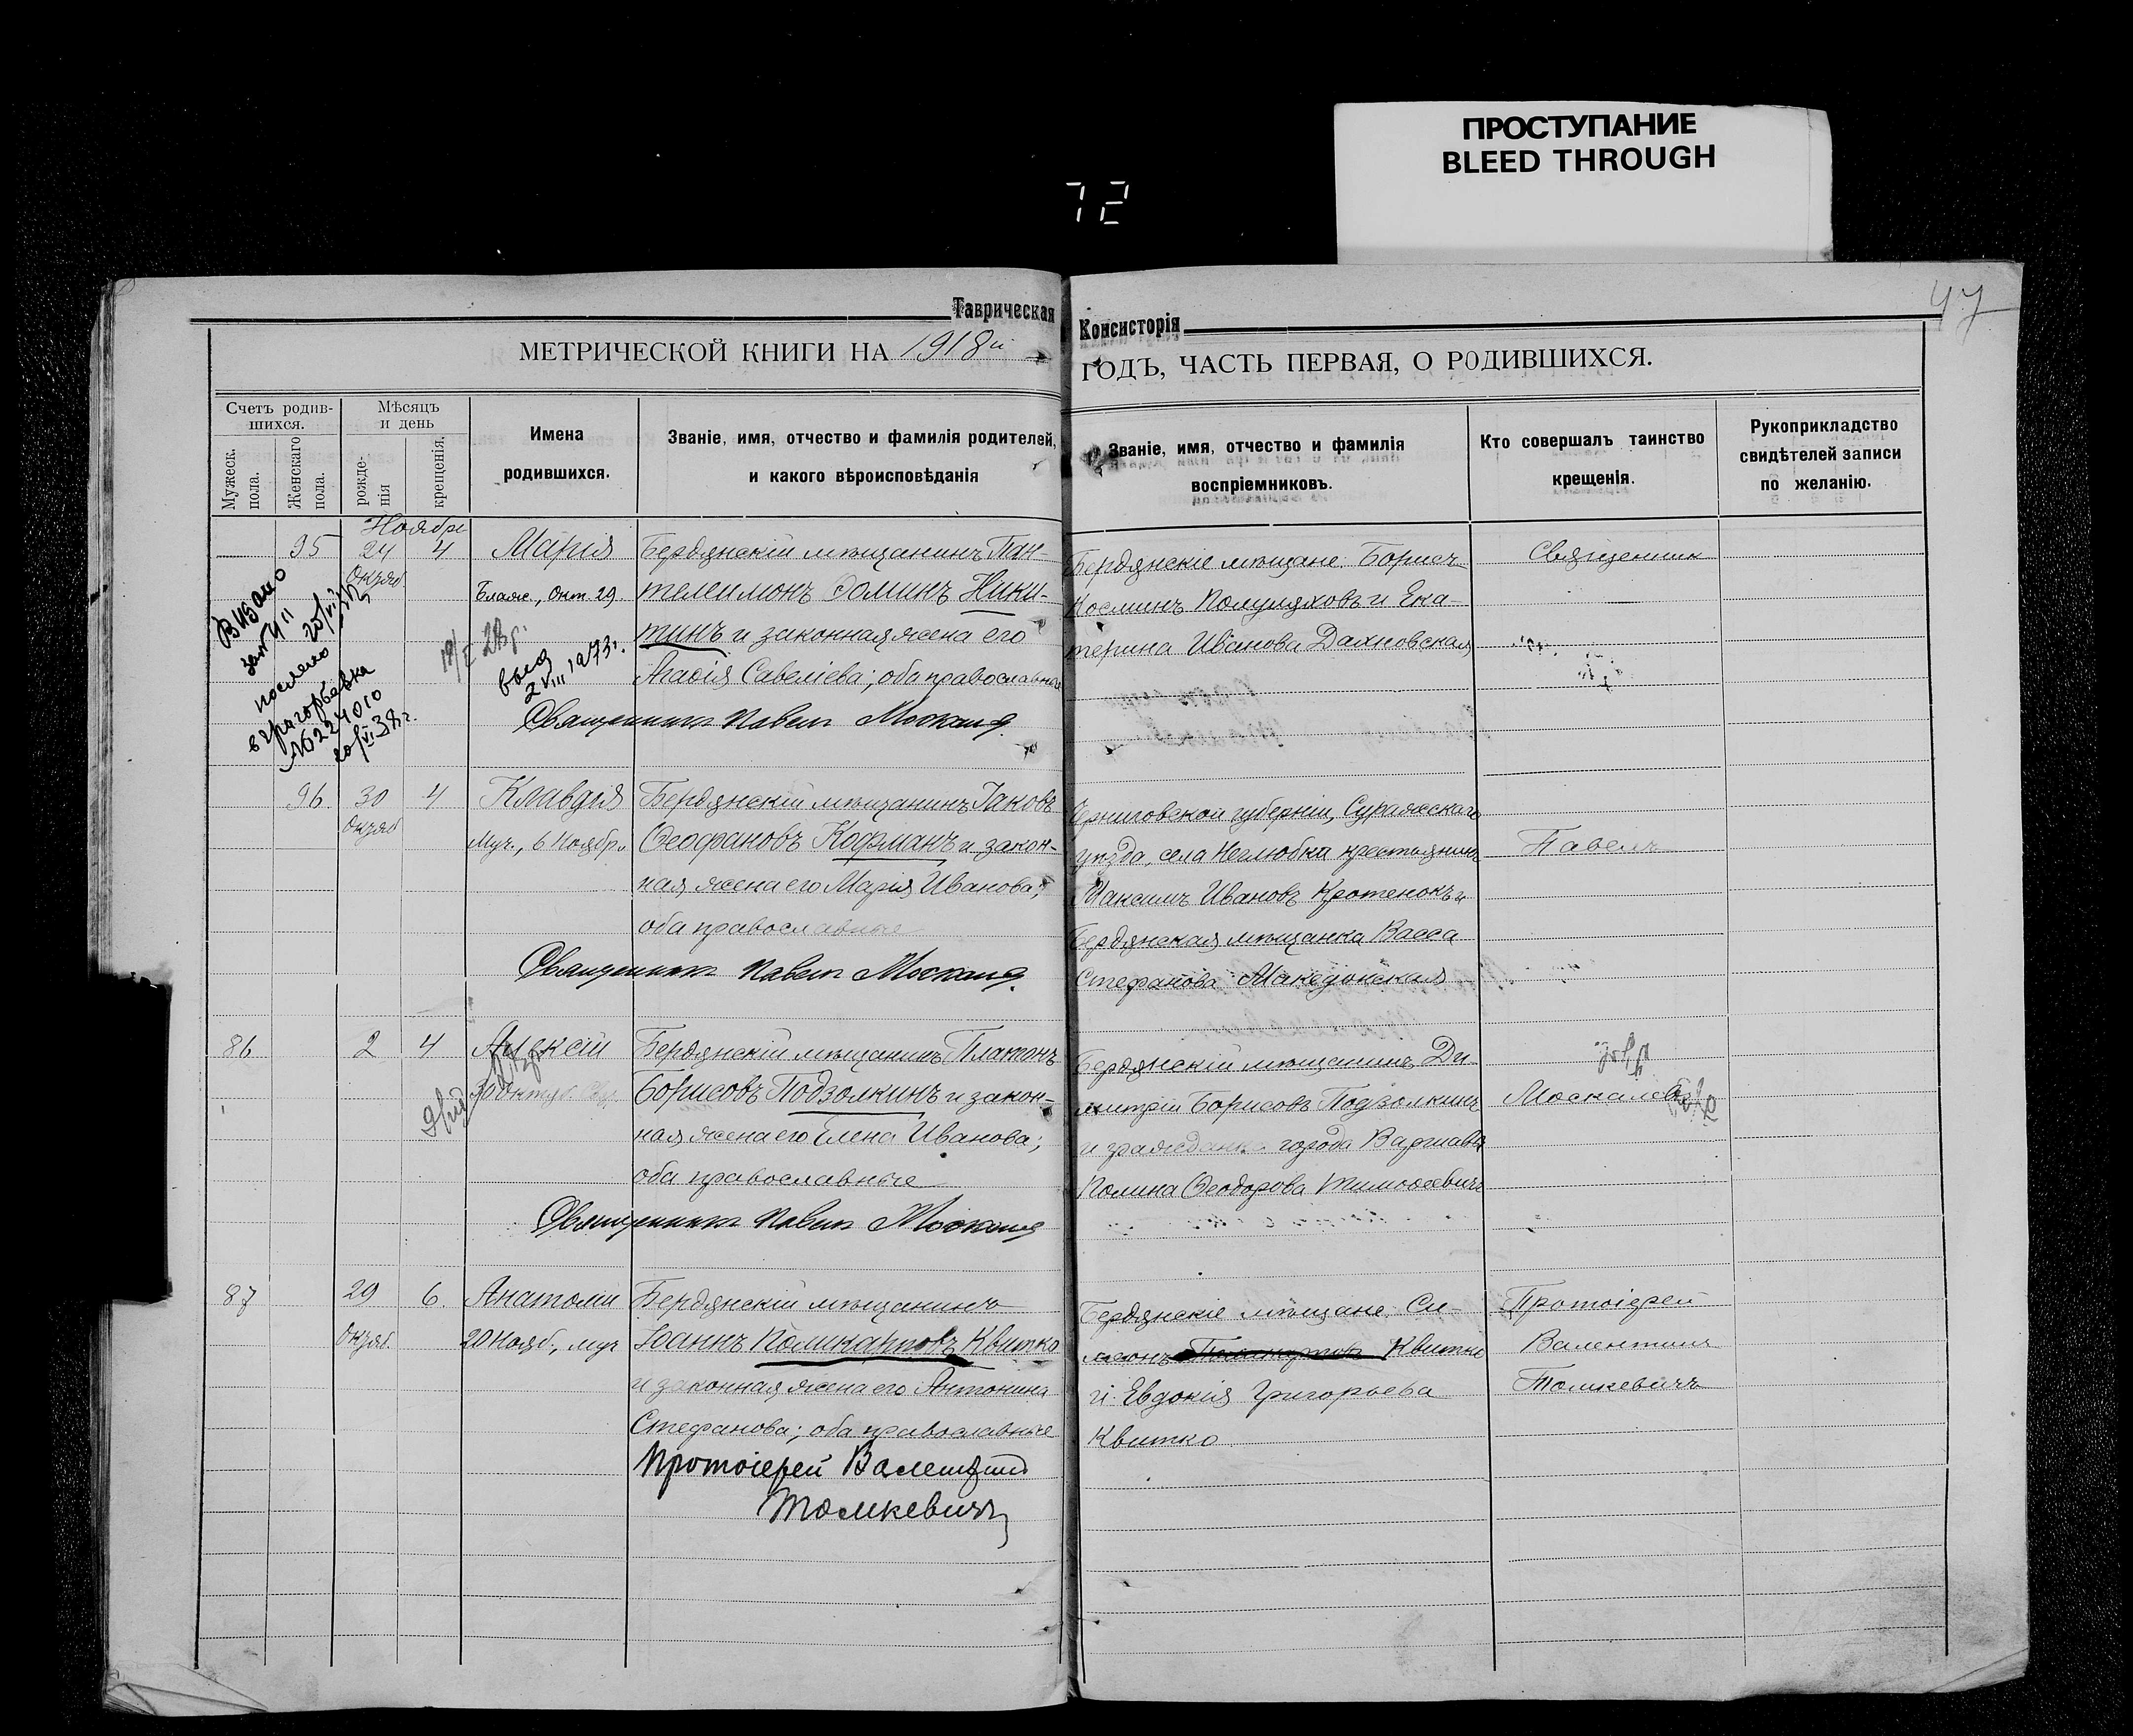 ПРОСТУПАНИЕ
BLEED THROUGH
72
47
Таврическая Консисторія
МЕТРИЧЕСКОЙ КНИГИ НА 1918й ГОДЪ, ЧАСТЬ ПЕРВАЯ, О РОДИВШИХСЯ.
Счетъ родив-
шихся.
Мужеск.
пола.
Женскаго
пола.
Мѣсяцъ
и день
рожде-
нія
крещенія.
Имена
родившихся.
Званіе, имя, отчество и фамилія родителей,
и какого вѣроисповѣданія
Званіе, имя, отчество и фамилія
воспріемниковъ.
Кто совершалъ таинство
крещенія.
Рукоприкладство
свидѣтелей записи
по желанію.
Ноября
95 24 4 Марія Бердянскій мѣщанинъ Пан-
Октяб. Блаж., Окт. 29 телеимонъ Ѳоминъ Ники-
тинъ и законная жена его
Агаѳія Савеліева; оба православные
Священникъ Павелъ Москалев
Бердянскіе мѣщане: Борисъ
Косминъ Полуляховъ и Ека-
терина Иванова Дахновская
Священник
послано
№ 224010
20/VI 38 г.
2 VIII 1973 г.
96 30 4 Клавдія Бердянскій мѣщанинъ Іаковъ
Октяб. Муч., 6 Ноябр. Ѳеофановъ Кофманъ и закон-
ная жена его Марія Иванова;
оба православные
Священникъ Павелъ Москалев
Черниговской губерніи, Суражскаго
уѣзда, села Неглюбка крестьянинъ
Максимъ Ивановъ Кротенокъ и
Бердянская мѣщанка Васса
Стефанова Македонская
Павелъ
86 2 4 Алексій Бердянскій мѣщанинъ Платонъ
Борисовъ Подзолкинъ и закон-
ная жена его Елена Иванова;
оба православные
Священникъ Павелъ Москалев
Бердянскій мѣщанинъ Ди-
митрій Борисовъ Подзолкинъ
и гражданка города Варшавы
Полина Ѳеодорова Тимоѳеевичъ
Москалевъ
87 29 6 Анатолій Бердянскій мѣщанинъ
Октяб. 20 Нояб., муч Іоаннъ Поликарповъ Квитко
и законная жена его Антонина
Стефанова; оба православные
Протоіерей Валентинъ
Томкевичъ
Бердянскіе мѣщане: Си-
меонъ Поликарповъ Квитко
и Евдокія Григорьева
Квитко
Протоіерей
Валентинъ
Томкевичъ